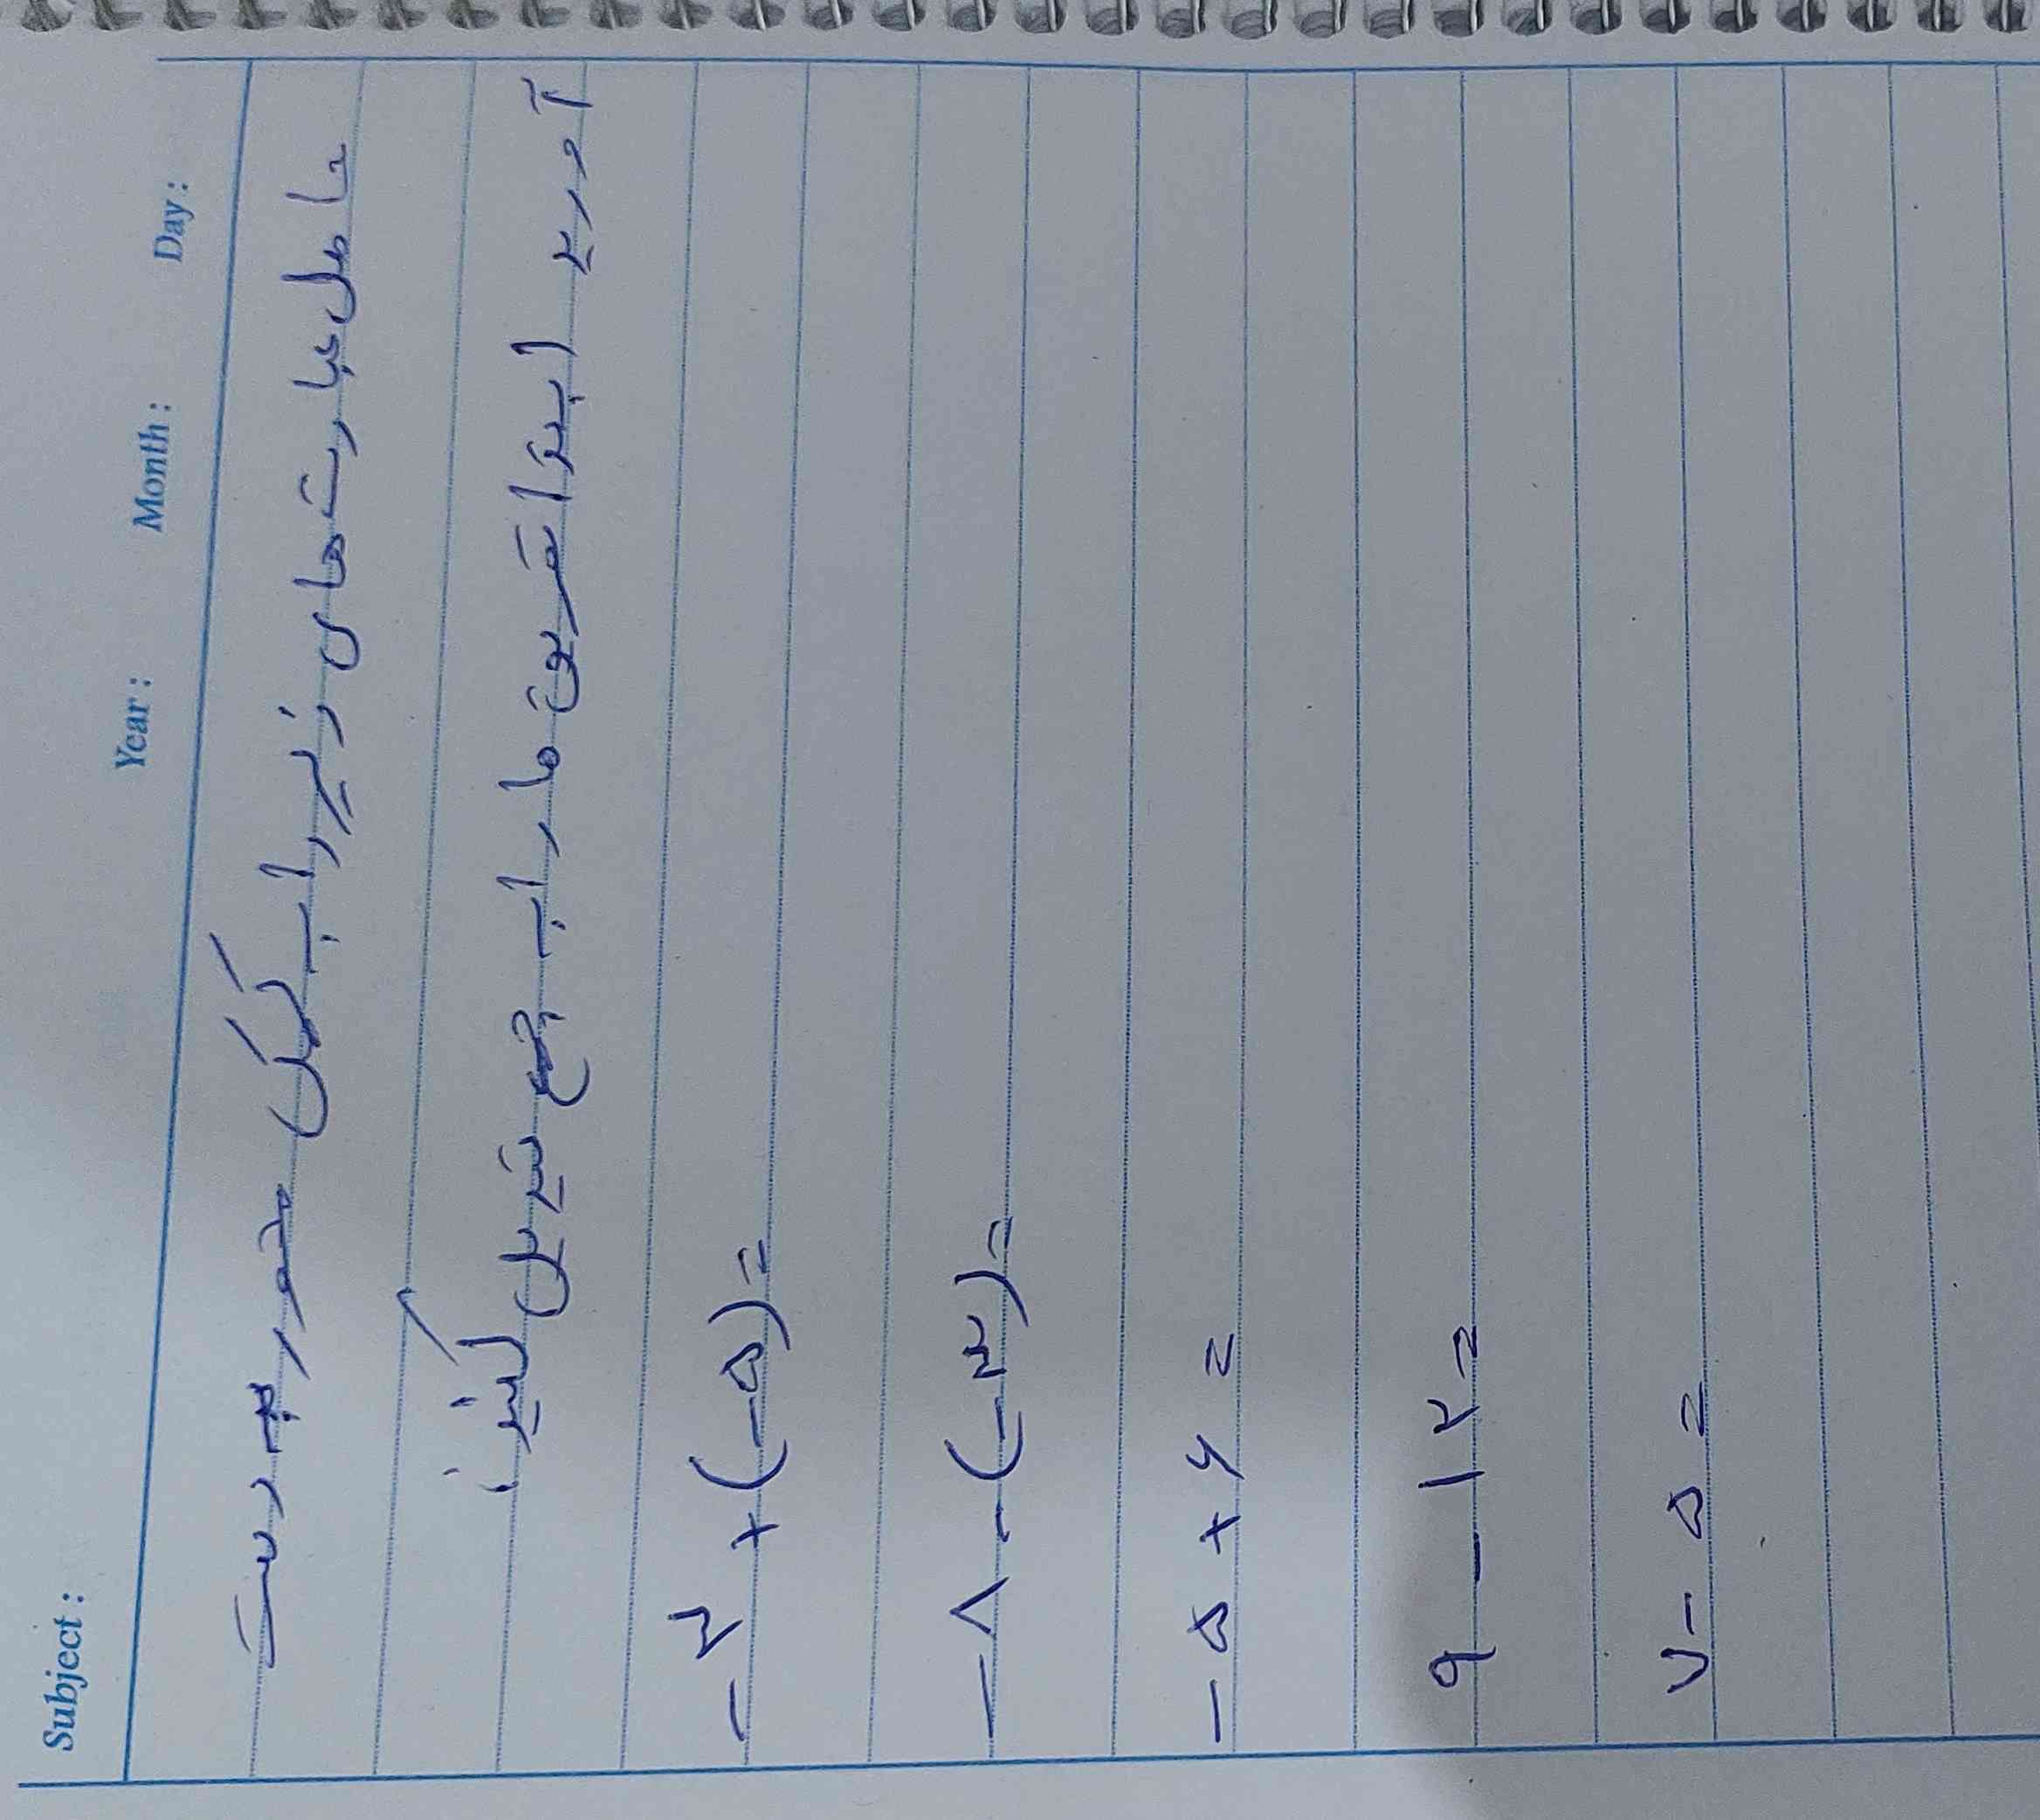 Subject : Year : Month : Day :
حاصل عبارت های زیر را به کمک محور به دست
آورید ابتدا تفریق ها را به جمع تبدیل کنید :
-۲ + (-۵) =
-۸ - (-۳) =
-۵ + ۶ =
۹ - ۱۲ =
۷ - ۵ =